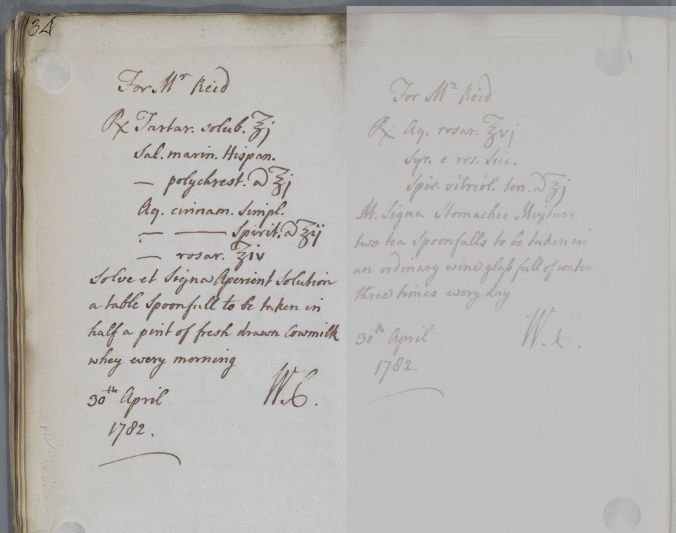 34
For Mr Reid
℞ Tartar. solub. ʒj
Sal. marin. Hispan.
— polychrest. a ʒj
Aq. cinnam. simpl.
— — Spirit. a ʒij
— rosar. ʒiv
Solve et Signa Aperient Solution
a table Spoonfull to be taken in
half a pint of fresh drawn Cowmilk
whey every morning
30th April W.C.
1782.
For Mr Reid
℞ Aq. rosar. ʒvj
Syr. e ros. sicc.
Spir. vitriol. ten. a ʒj
M. Signa Stomachic Mixture
two tea Spoonfulls to be taken in
an ordinary wine glass full of water
three times every day
30th April W.C.
1782.